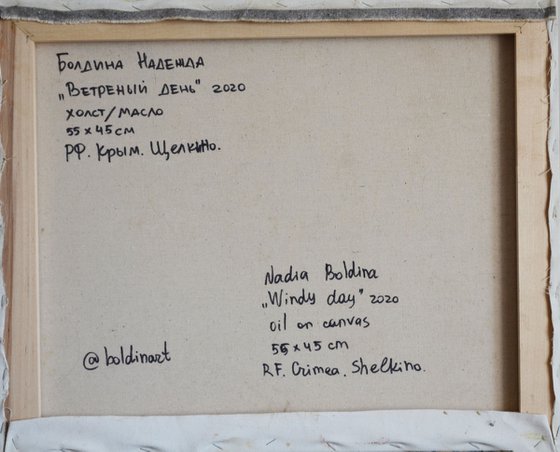 Болдина Надежда
„Ветреный день" 2020
холст/масло
55 x 45 см
РФ. Крым. Щелкино.
Nadia Boldina
„Windy day" 2020
oil on canvas
55 x 45 cm
RF. Crimea. Shelkino.
@boldinart